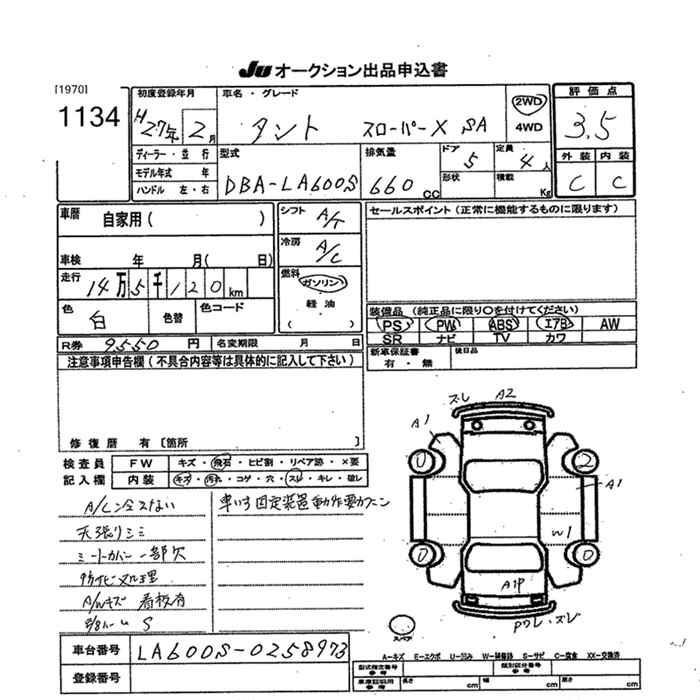 JU オークション出品申込書
[1970]
1134
初度登録年月 H27年 2月
車名・グレード タント スローパーX SA
2WD
4WD
評価点 3.5
外装 内装
C C
ディーラー・並行
モデル年式 年
ハンドル 左・右
型式 DBA-LA600S
排気量 660 CC
ドア 5
形状
定員 4人
積載 Kg
車暦 自家用( )
車検 年 月( 日)
走行 14万5千120km
色 白 色替 色コード
シフト A/T
冷房 A/C
燃料 ガソリン
軽油
( )
セールスポイント(正常に機能するものに限ります)
装備品(純正品に限り○を付けてください)
PS PW ABS エアB AW
SR ナビ TV カワ
新車保証書 有・無
後日品
R券 9550 円 名変期限 月 日
注意事項申告欄(不具合内容等は具体的に記入して下さい)
修復暦 有[箇所 ]
検査員 FW キズ・飛石・ヒビ割・リペア跡・×要
記入欄 内装 キズ・汚れ・コゲ・穴・スレ・キレ・破レ
A/C冷えない
天張りシミ
シートカバー 一部欠
A/Wキズ 看板有
S
車いす固定装置動作要カクニン
ズレ A2
A1
0 2
A1
W1
0 0
A1P
Pワレ・ズレ
スペア
車台番号 LA600S-0258973
登録番号
A-キズ E-エクボ U-凹み W-補修跡 S-サビ C-腐食 XX-交換済
型式指定番号 参考
類別区分番号 参考
車庫証明用 参考
長さ cm 幅 cm 高さ cm